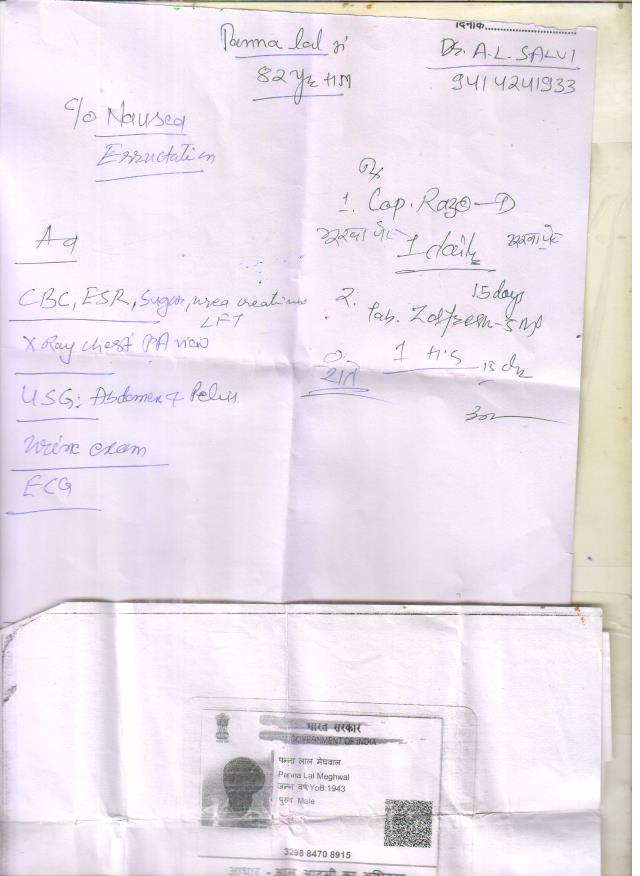 दिनांक
Panna lal
82 yr
Dr. A.L. SALVI
9414241933
c/o Nausea
Erructation
Rx
1. Cap. Razo-D
1 daily
Ad
CBC, ESR, Sugar, urea creatinine
LFT
X Ray chest PA view
USG: Abdomen & Pelvis
Urine exam
ECG
15 days
2. Tab.
1 HS
भारत सरकार
GOVERNMENT OF INDIA
पन्ना लाल मेघवाल
Panna Lal Meghwal
जन्म वर्ष/YoB:1943
पुरुष Male
3298 8470 8915